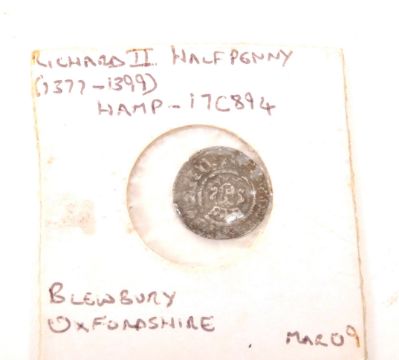 RICHARD II HALFPENNY
(1377-1399)
HAMP-17C894
BLEWBURY
OXFORDSHIRE
MAR09